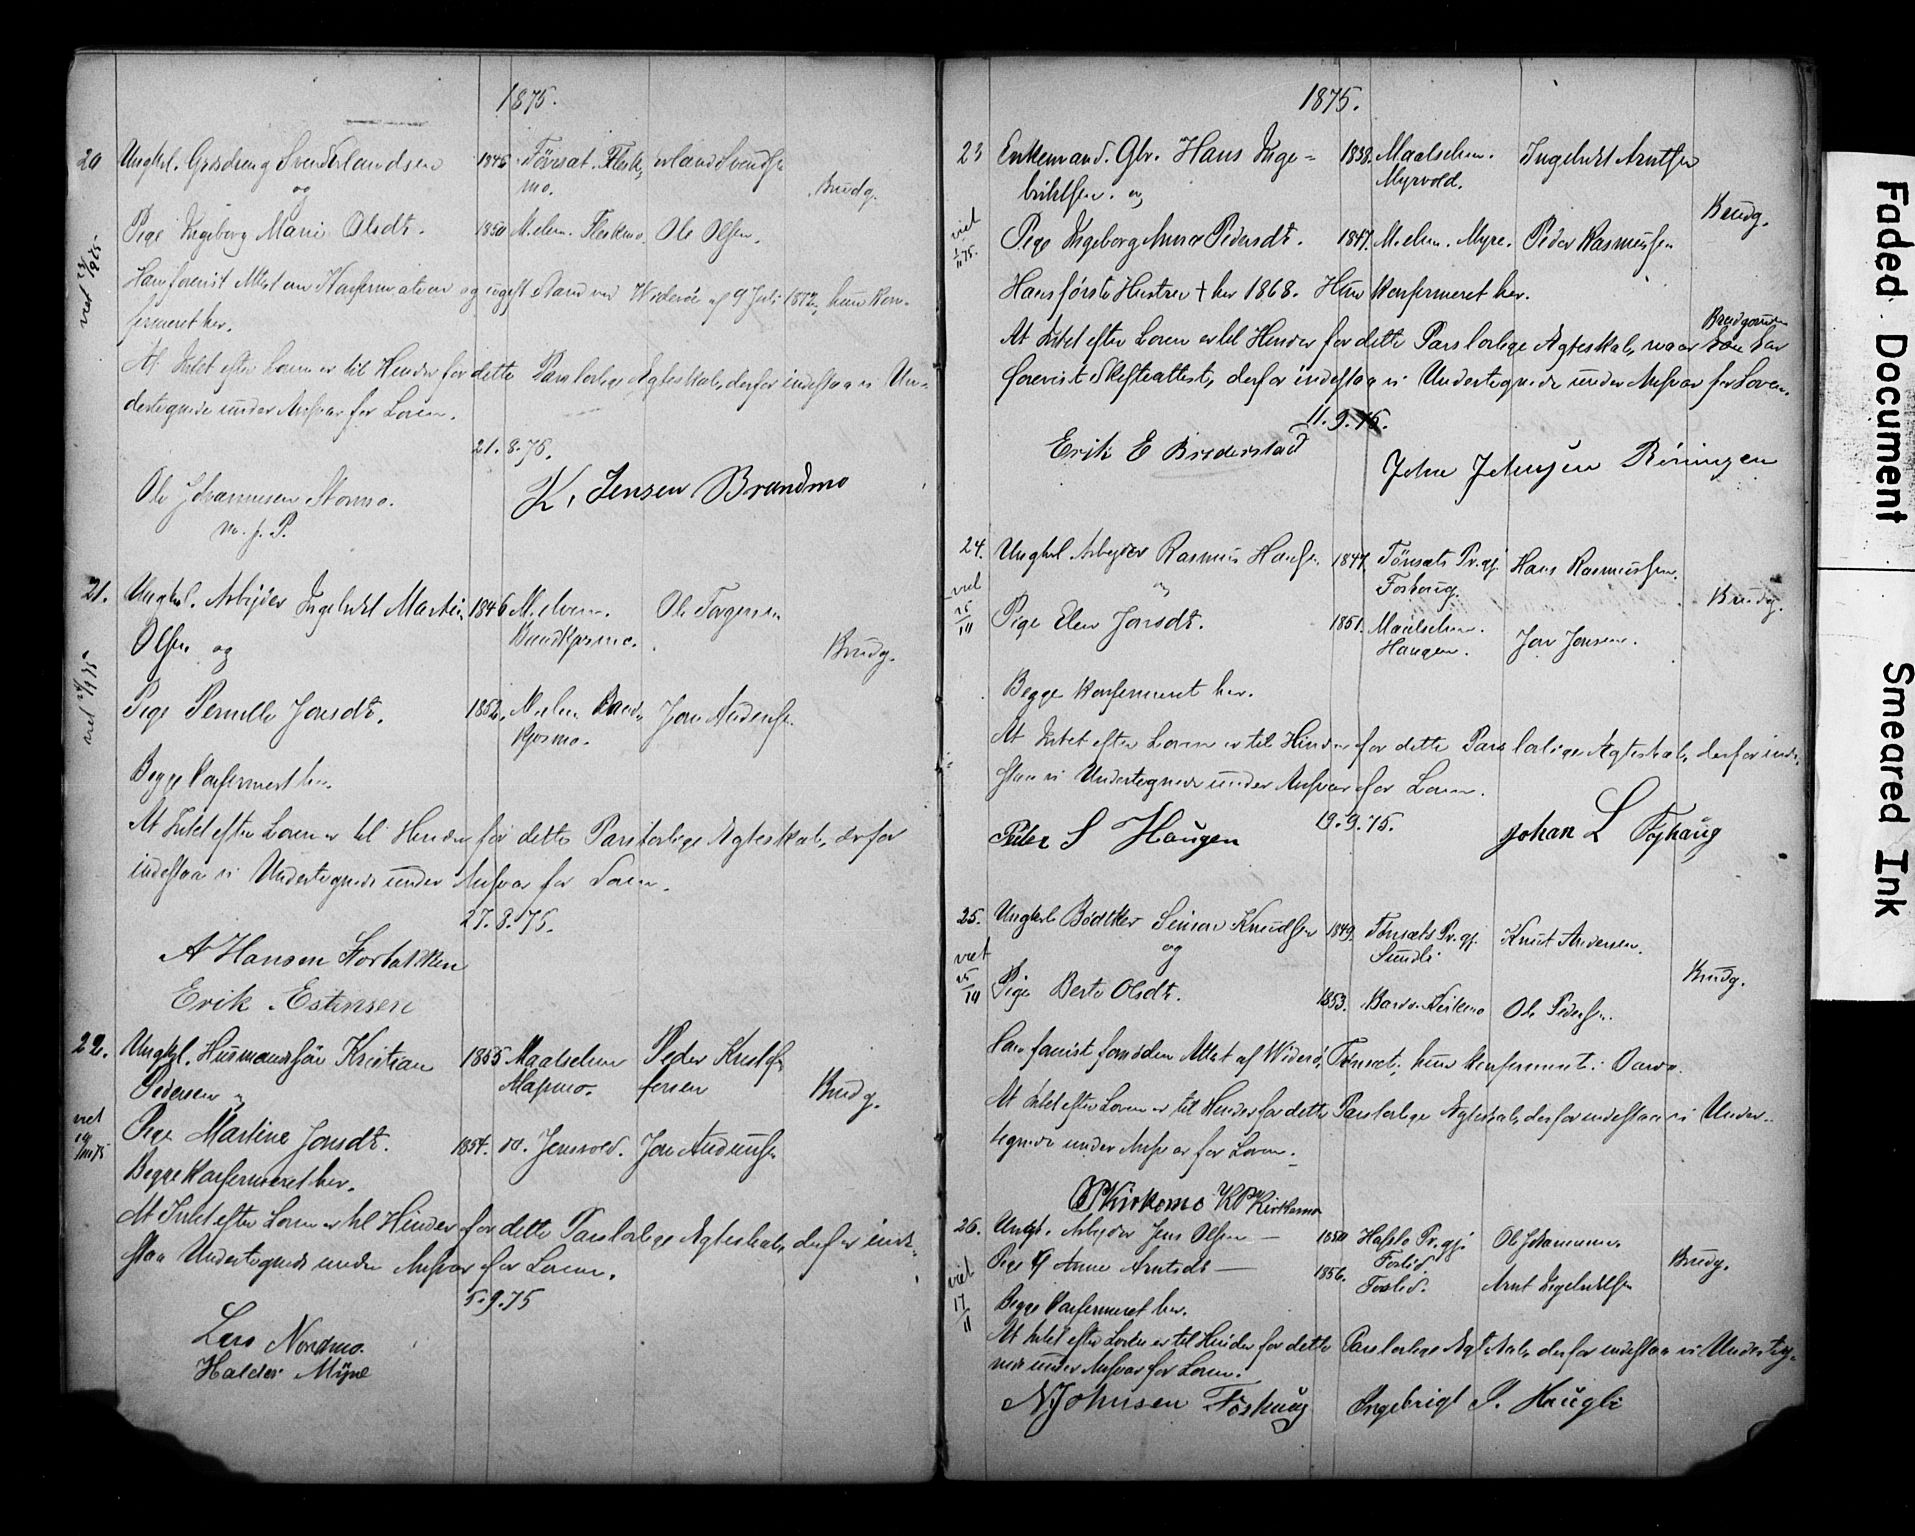 1875.
20 Ungkl. Gaardm Svend Erlandsen 1845 Tönsæt. Flesk- Erland Svendsn
og mo. Brudg.
Pige Ingeborg Marie Olsdt. 1850 M.elven. Fleskmo. Ole Olsen.
Han forevist Attest om Konfirmation og ugift Stand ved Widerøe af 9 Juli, hun kon-
firmeret her.
At Intet efter Loven er til Hinder for dette Pars lovlige Ægteskab, derfor indestaa vi Un-
dertegnede under Ansvar for Loven.
21. 8. 75.
Ole Johannesen Stormo. K. Jensen Brandmo
m. p. P.
21. Ungkl. Arbeider Ingebrikt Martin 1846 M.elven. Ole Torgersen
Olsen og Rundkjosmo. Brudg.
Pige Pernille Jonsdt. 1852. M.elven Rund- Jon Andersen
kjosmo.
Begge konfirmeret her.
At Intet efter Loven er til Hinder for dette Pars lovlige Ægteskab, derfor
indestaa vi Undertegnede under Ansvar for Loven.
27. 8. 75.
A Hansen Fosbakken
Erik Estensen
22. Ungkl. Husmandssøn Kristian 1855 Maalselven Peder Kristof-
Pedersen og Alapmo. fersen Brudg.
viet
Pige Martine Jonsdt. 1854. do. Jensvold. Jon Audunsen
Begge konfirmeret her.
At Intet efter Loven er til Hinder for dette Pars lovlige Ægteskab, derfor inde-
staa Undertegnede under Ansvar for Loven.
5. 9. 75
Lars Nordmo.
Haldor Myre
1875.
23 Enkemand. Gbr. Hans Inge- 1838. Maalselven. Ingebrikt Arntsen
briktsen. og Myrvold.
viet Brudg.
Pige Ingeborg Anna Pedersdt. 1847. M.elven. Myre. Peder Rasmussen
Hans første Hustru † her 1868. Hun konfirmeret her.
Brudgommen
At Intet efter Loven er til Hinder for dette Pars lovlige Ægteskab, naar har
forevist Skifteattest, derfor indestaa vi Undertegnede under Ansvar for Loven.
11. 9. 75.
Erik E Brederstad John Johnsen Röningen
24. Ungkl Arbeider Rasmus Hansen 1847. Tönsæts Pr.gj. Hans Rasmussen.
viet og Foshaug. Brudg.
Pige Elen Jonsdt. 1851. Maalselven. Jon Jonsen.
Haugen.
Begge konfirmeret her.
At Intet efter Loven er til Hinder for dette Pars lovlige Ægteskab, derfor inde-
staa vi Undertegnede under Ansvar for Loven.
19. 9. 75.
Peder S Haugen Johan L Foshaug
25. Ungkl Bødtker Simon Knudsen 1849. Tönsæts Pr.gj. Knut Andersen.
viet og Sundli Brudg.
Pige Berte Olsdt. 1853. Bardo. Kirkmo Ole Pedersen.
Han forevist fornöden Attest af Widerø, Tönsæt, hun konfirmeret i Bardo.
At Intet efter Loven er til Hinder for dette Pars lovlige Ægteskab, derfor indestaa vi Under-
tegnede under Ansvar for Loven.
OPKirkemo KPKirkemo
26. Ungk. Arbeider Jens Olsen 1850 Hafslo Pr.gj. Ole Johannesen.
Foslid. Brudg.
viet Pige Anne Arntsdt 1856. Foslid. Arnt Ingebriktsen
17/11
Begge konfirmeret her.
At Intet efter Loven er til Hinder for dette Pars lovlige Ægteskab, derfor indestaa vi Underteg-
nede under Ansvar for Loven.
N Johnsen Foshaug Ingebrigt P. Haugli
Faded Document
Smeared Ink